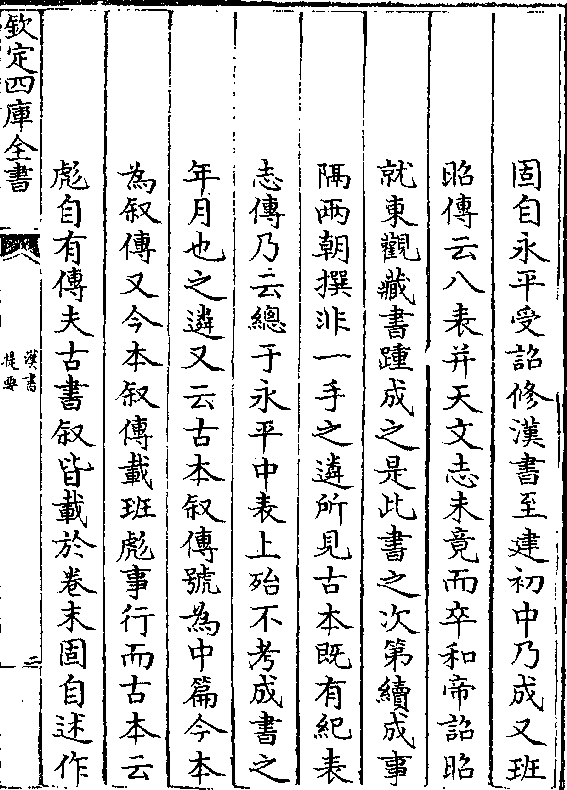 固自永平受詔修漢書至建初中乃成又班
昭傳云八表并天文志未竟而卒和帝詔昭
就東觀藏書踵成之是此書之次第續成事
隔兩朝撰非一手之遴所見古本既有紀表
志傳乃云總于永平中表上殆不考成書之
年月也之遴又云古本叙傳號為中篇今本
為叙傳又今本叙傳載班彪事行而古本云
彪自有傳夫古書叙皆載於卷末固自述作
欽定四庫全書
漢書
提要
二